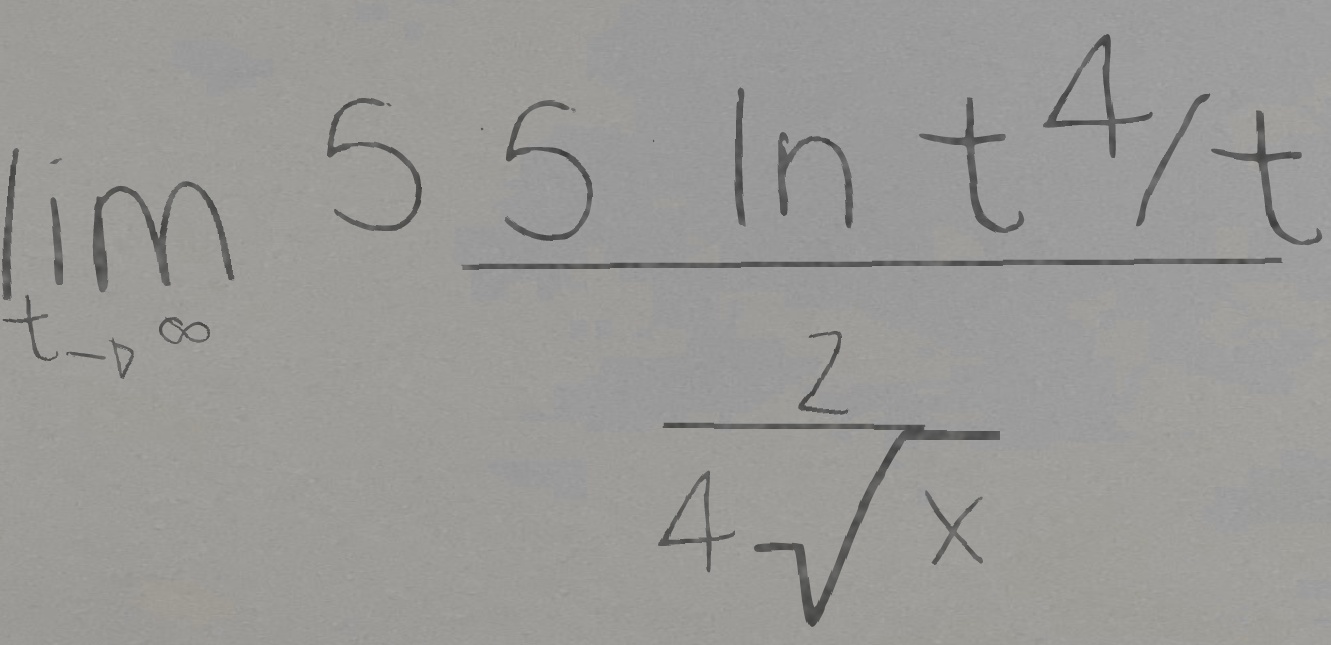 lim t→∞ 5 5 ln t^4/t
2
4√x